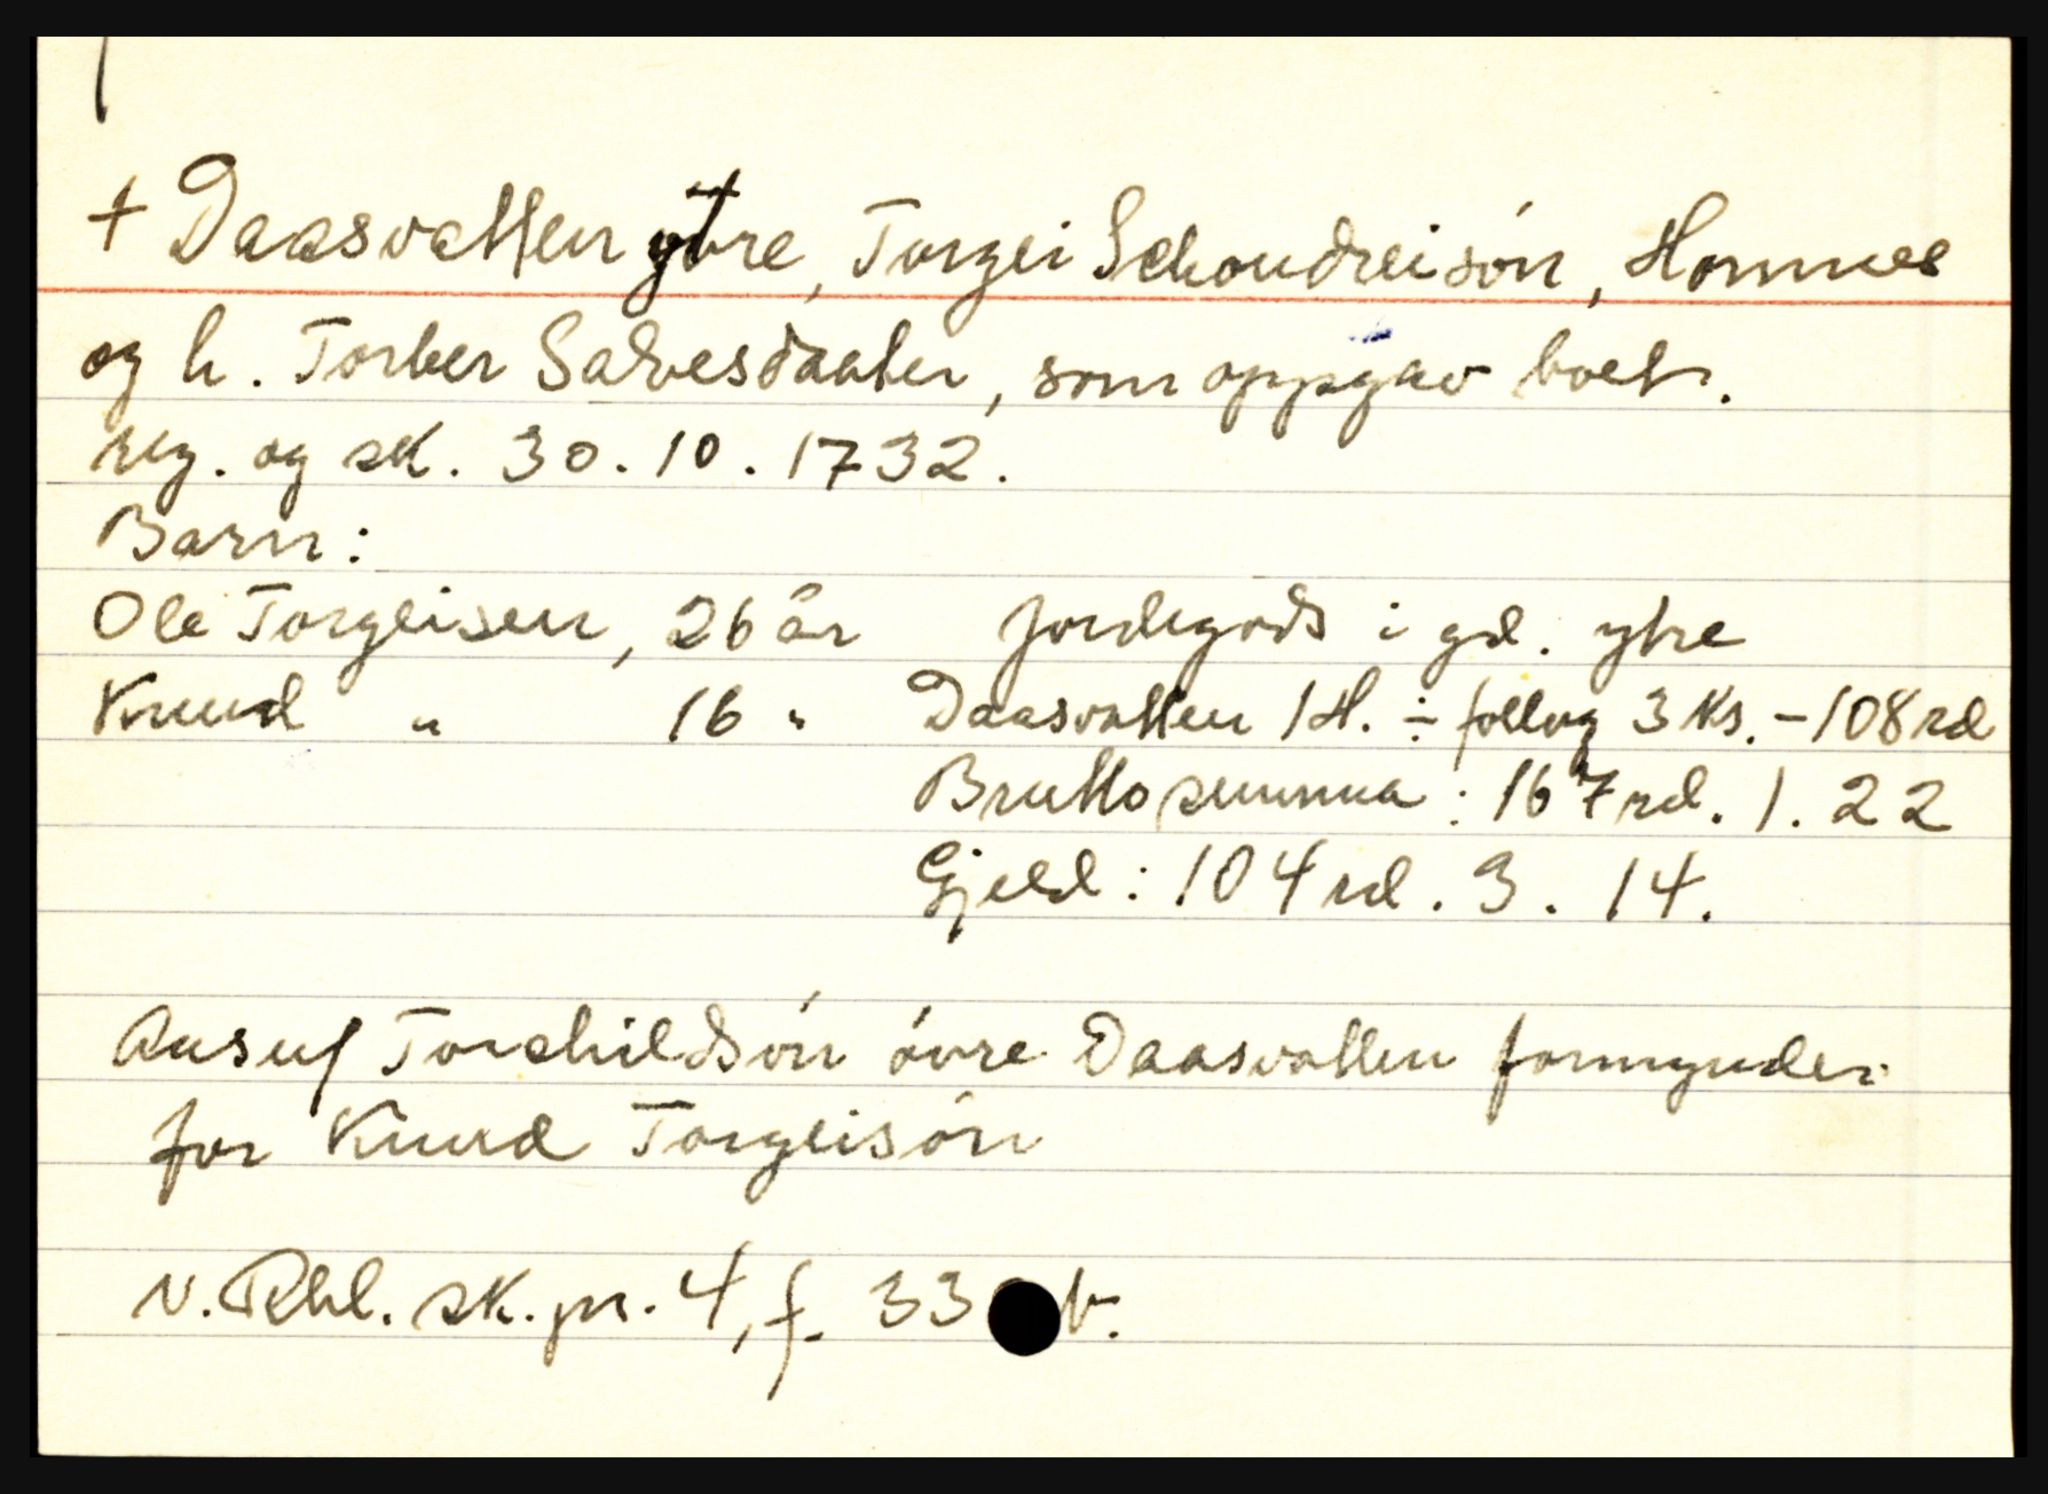 + Daasvatten ytre, Torgei Schoudreisón, Hommes
og h. Torber Salvesdaater, som oppgav boet.
reg. og sk. 30.10.1732.
Barn:
Ole Torgeisen, 26 år Jordegods i gd. ytre
Knud " 16 " Daasvatten 1 H. ÷ follug 3 ks. - 108 rd
Brutto summa: 167 rd. 1. 22
Gjeld: 104 rd. 3. 14.
Ausuf Torchildsón óvre Daasvatten formynder
for Knud Torgeisón
N. Rbl. sk. pr. 4, f. 33 b.